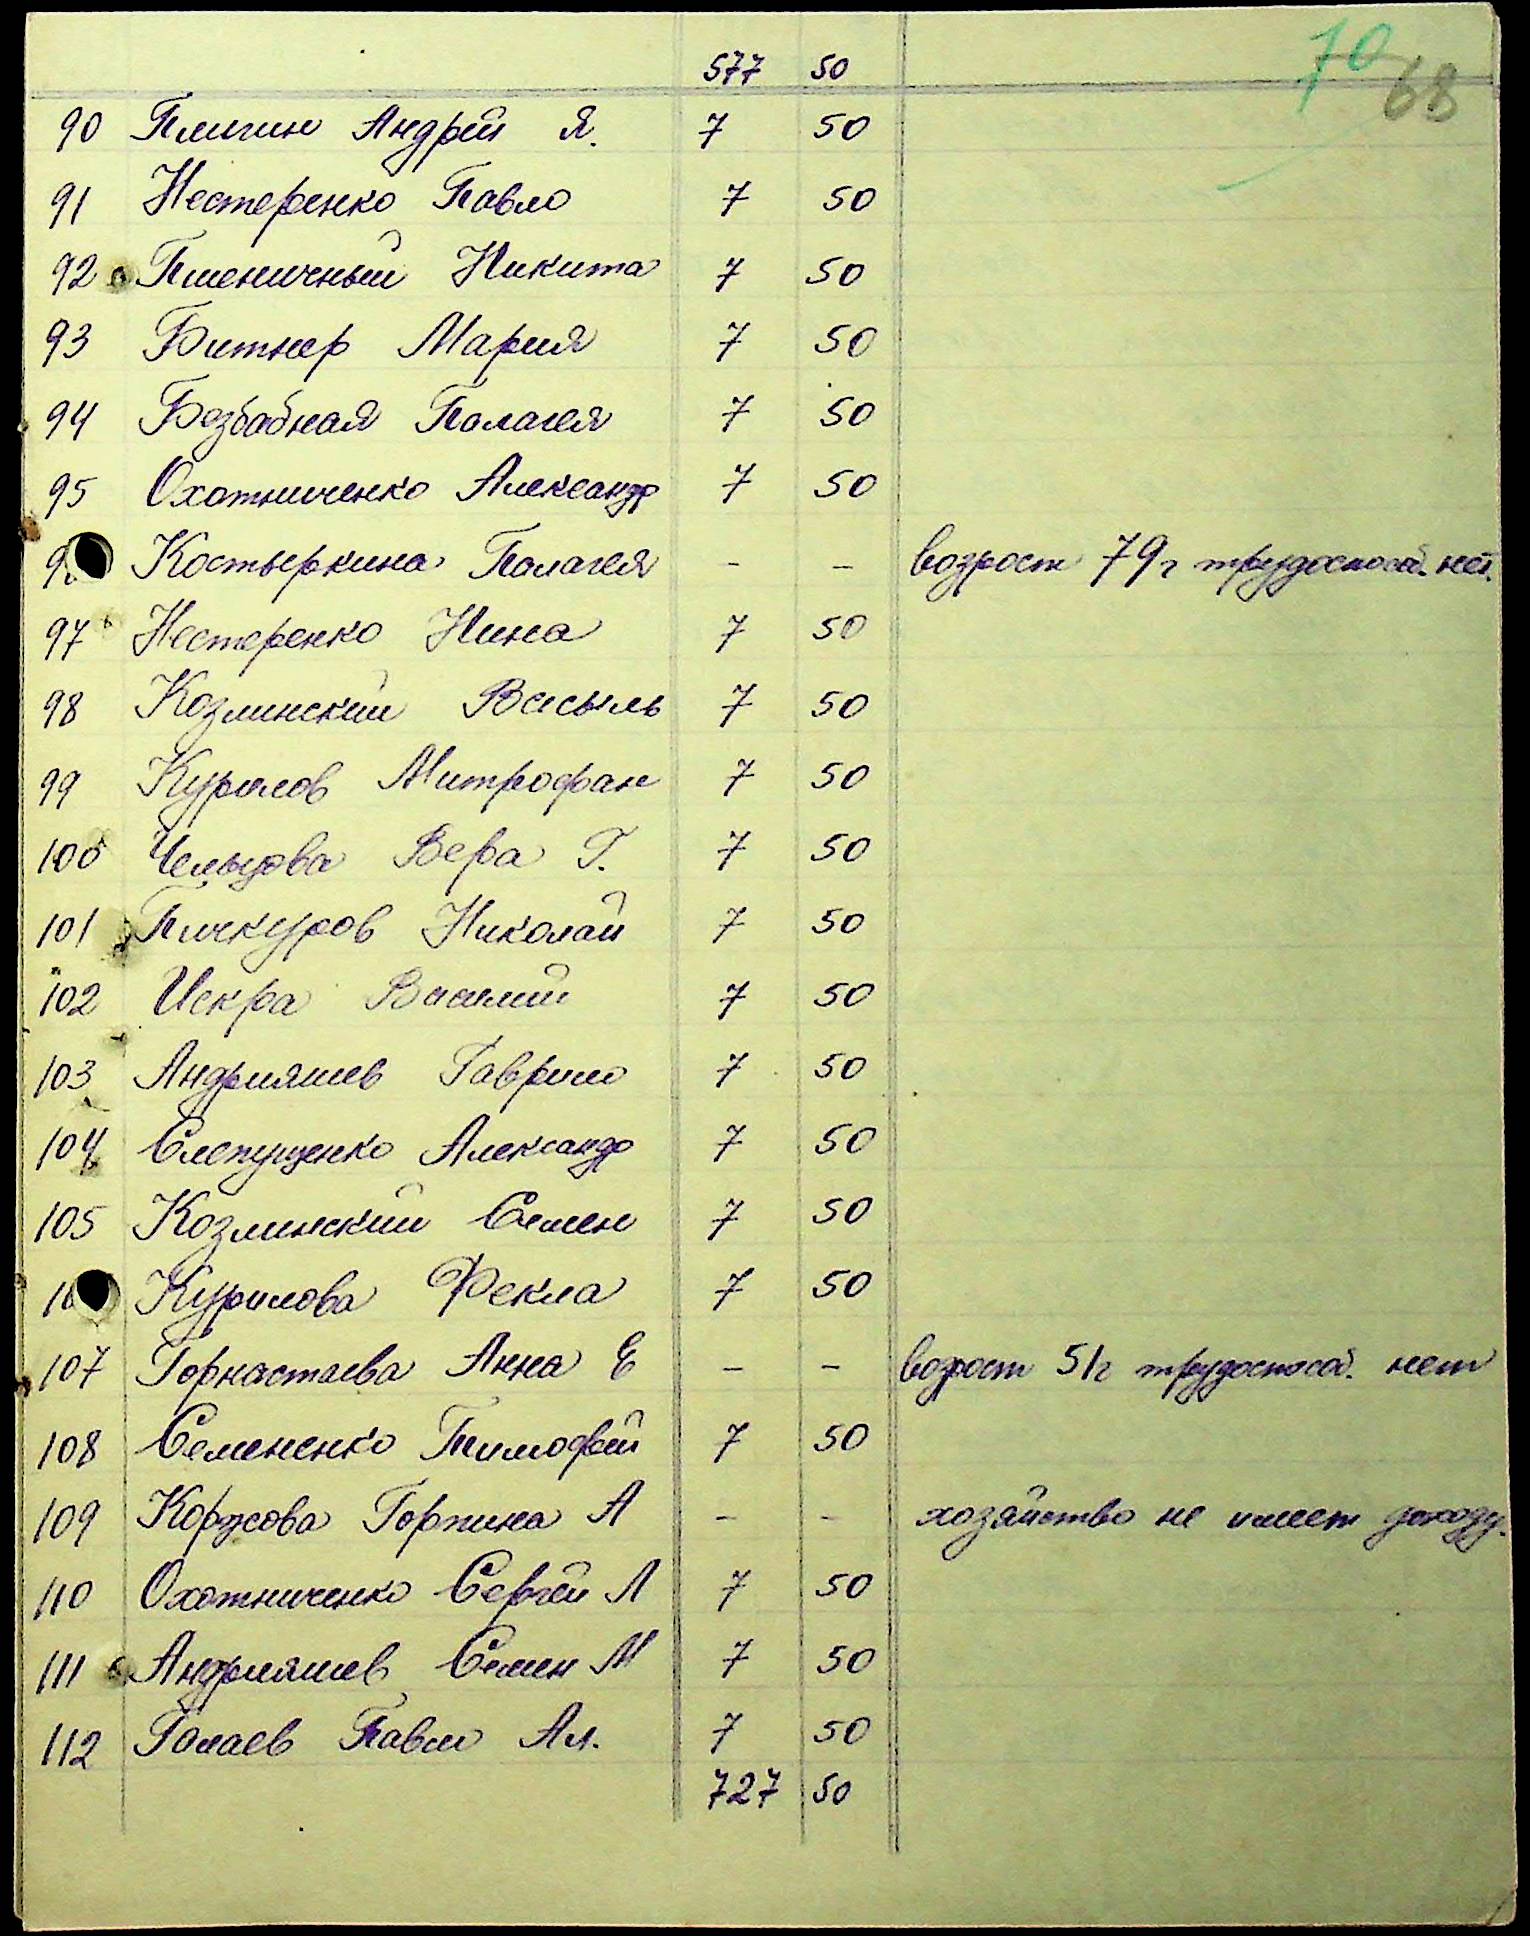 70
68
577 50
90 Плигин Андрей Я. 7 50
91 Нестеренко Павло 7 50
92 Пшеничный Никита 7 50
93 Битнер Мария 7 50
94 Безбабная Палагея 7 50
95 Охотниченко Александр 7 50
Костыркина Палагея - - возрост 79 г трудоспособ. нет.
97 Нестеренко Нина 7 50
98 Козлинский Васыль 7 50
99 Курилов Митрофан 7 50
100 Чельцова Вера Г. 7 50
101 Пичкуров Николай 7 50
102 Искра Василий 7 50
103 Андрияшев Гаврило 7 50
104 Слепущенко Александр 7 50
105 Козлинский Семен 7 50
Курилова Фекла 7 50
107 Горностаева Анна Е - - возрост 51 г трудоспособ. нет
108 Семененко Тимофей 7 50
109 Коржова Горпина А - - хозяйство не имеет доходу.
110 Охотниченко Сергей Л 7 50
111 Андрияшев Семен М 7 50
112 Голаев Павел Ал. 7 50
727 50